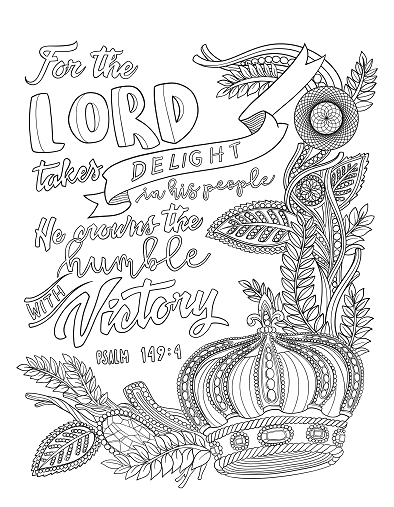 For the
LORD
takes DELIGHT
in his people
He crowns the
humble
WITH
Victory
PSALM 149:4